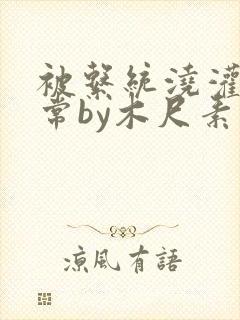 被繫統澆灌
常by木尺素
涼風有語